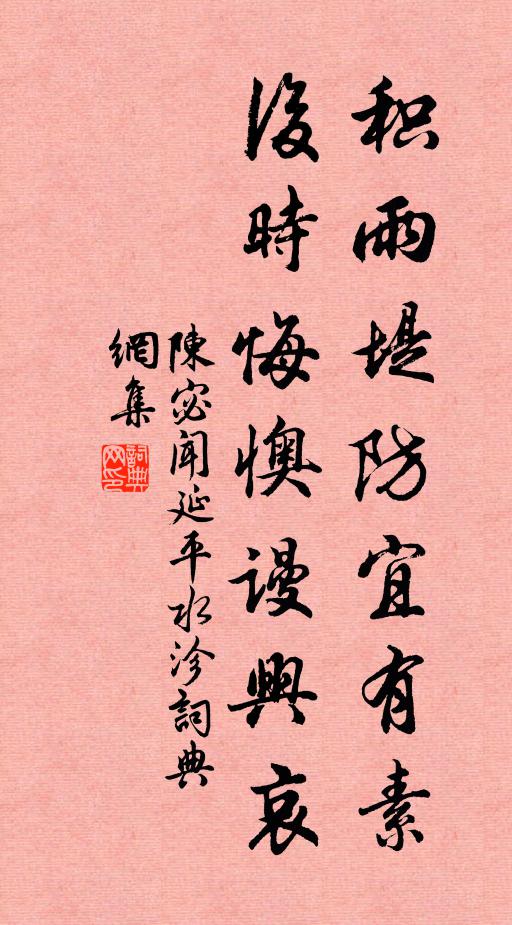 积雨堤防宜有素
後時悔懊謾興哀
陳宓闻延平水沴詞典
網集
詞典網印